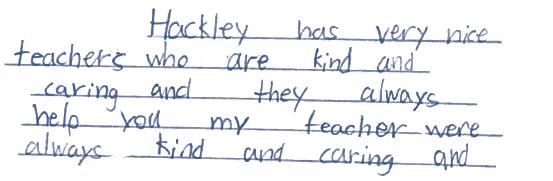 Hackley has very nice
teachers who are kind and
caring and they always
help you my teacher were
always kind and caring and